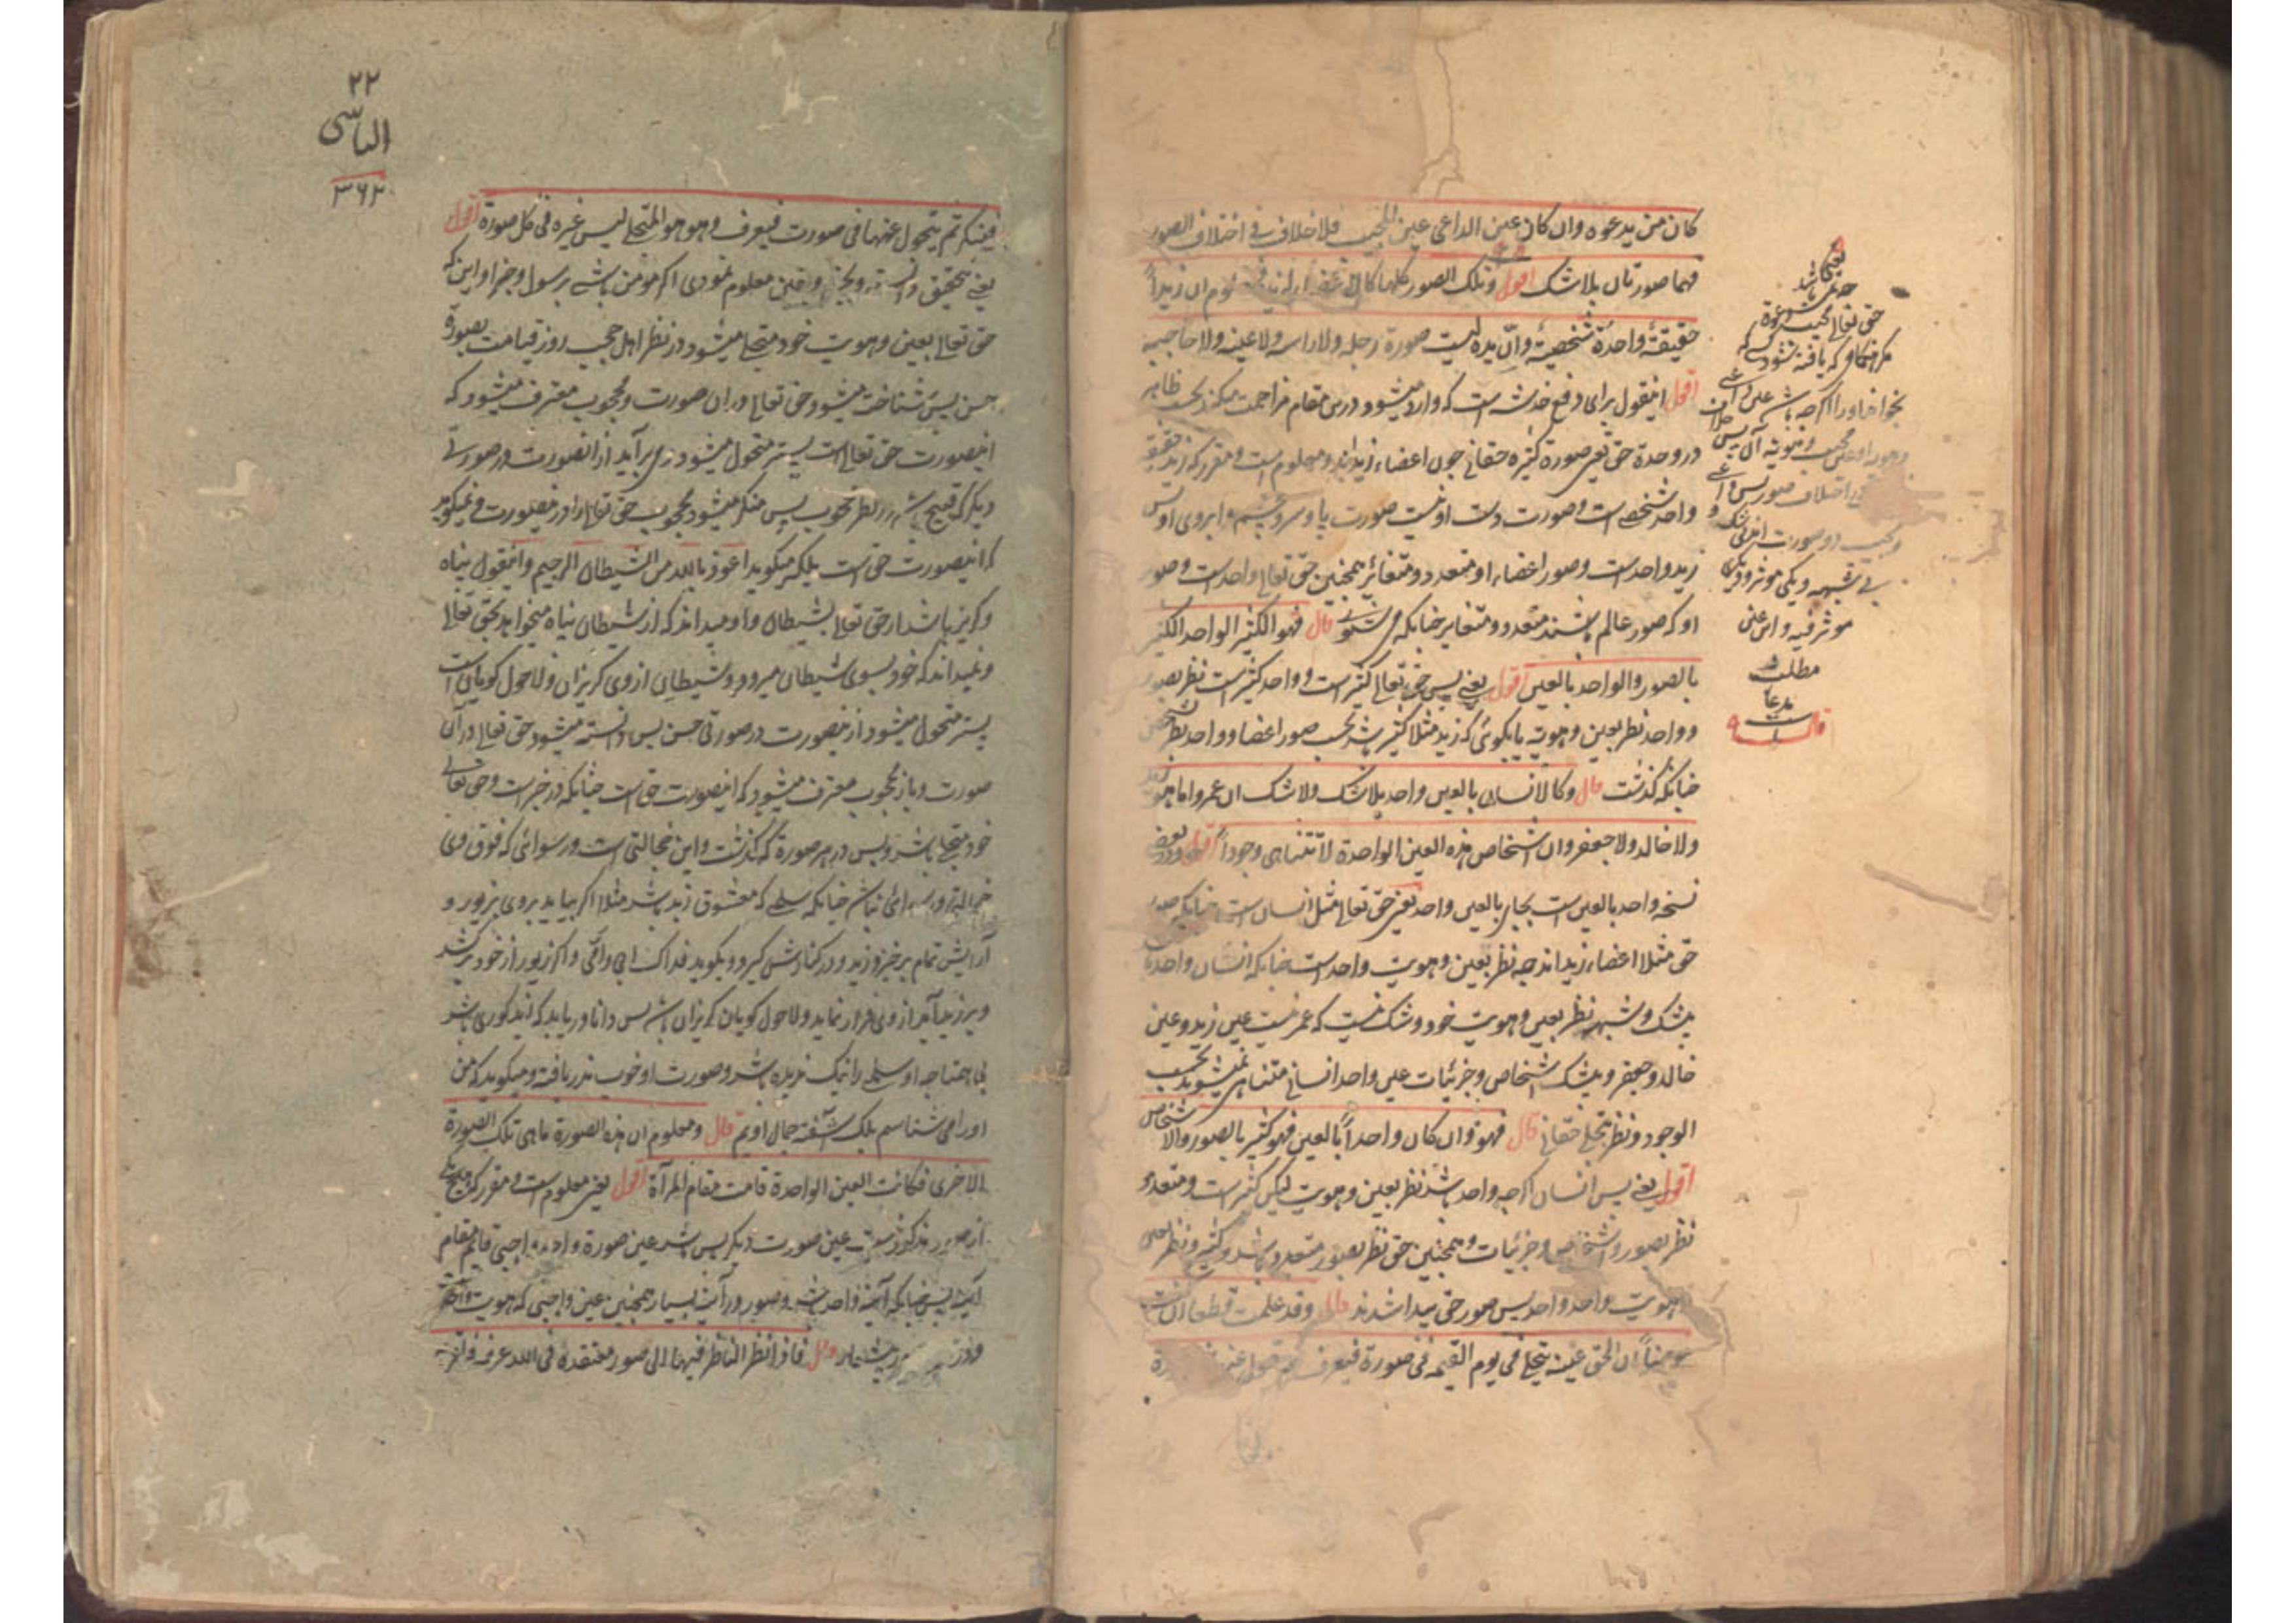 كان من يدعوه وان كان عين الداعى عين المجيب فلا خلاف فى اختلاف الصور
فهما صورتان بلا شك اقول وتلك الصور كلها كالاعضاء لزيد فمعلوم ان زيداً
حقيقة واحدة شخصية وان يده ليست صورة رجله ولا راسه ولا عينه ولا حاجبه
اقول اینقول برای دفع خدشه است که وارد میشود درین مقام مزاحمت میکند بحسب ظاهر
در وحدة حق یعنی صورة کثیره حقانی چون اعضاء زیدند ومعلوم است ومقرر که زید حقیقة
واحد شخصے است وصورت دست او نیست صورت پا و سر وچشم و ابروی او پس
زید واحد است وصور اعضاء او متعدد ومتغائر همچنین حق تعالی واحد است وصور
او که صور عالم باشند متعدد ومتغایر چنانکه می شنوی قال فهو الكثير الواحد الكثير
بالصور والواحد بالعين اقول یعنے پس حق تعالی کثیر است وواحد کثیر است نظر بصور
وواحد نظر بعین وهویة یا بگوئی که زید مثلا کثیر باشد بحسب صور اعضا وواحد نظر
چنانکه گذشت قال وكالانسان بالعين واحد بلا شك ولا شك ان عمروا ما هو زيد
ولا خالد ولا جعفر وان اشخاص هذه العين الواحدة لا تتناهى وجوداً اقول ودر بعض
نسخه واحد بالعین است بجای بالعین واحد یعنی حق تعالی مثل انسان است چنانکه صور
حق مثلا اعضاء زید اند چه نظر بعین وهویت واحد است چنانکه انسان واحد
بیشک وشبهه نظر بعین وهویت خود وشک نیست که عمر نیست عین زید وعین
خالد وجعفر وبیشک اشخاص وجزئیات عین واحد انسانی متناهی نمیشوید بحسب
الوجود ونظر بتجلی حقانی قال فهو وان كان واحداً بالعين فهو كثير بالصور والاشخاص
اقول یعنے پس انسان اگرچه واحد باشد نظر بعین وهویت لیکن کثیر است ومتعدد
نظر بصور واشخاص وجزئیات وهمچنین حق نظر بصور متعدد باشد وکثیر ونظر بعین
وهویت واحد وواحد پس صور حق پیدا شدند قال وقد علمت قطعا ان كنت
مومناً ان الحق عينه يتجلى فى يوم القيمة فى صورة فيعرف ثم يتحول فى صورة
یعنی باشد
حق تعالی مجیب دعوة
مگر هنگامی که یافته شود کسی که
بخواند او را اگرچه باشد عین داعی
وجود او عین مجیب وهویة آن پس خلاف
فی اختلاف صور پس داعی
ومجیب دو صورت اند بی شک و
بے شبهه ویکی موثر ودیگری
موثر فیه واین عین
مطلب
مدعا
است
قال
۲۲
الیاسی
۳۶۲
فينكر ثم يتحول عنها فى صورت فيعرف وهو هو المتجلى ليس غيره فى كل صورة اقول
یعنے بتحقیق دانسته وبیقین معلوم نمودی اگر مومن باشے برسول وجز او این که
حق تعالی بعین وهویت خود متجلی میشود در نظر اهل حجب روز قیامت بصورة
حسن پس شناخته میشود حق تعالی در ان صورت ومحجوب معترف میشود که
اینصورت حق تعالی است پستر متحول میشود وی برآید از انصورت در صورتے
دیگر که قبیح باشد در نظر محجوب پس منکر میشود محجوب حق تعالی را در ینصورت ونمیگوید
که اینصورت حق است بلکه میگوید اعوذ بالله من الشیطان الرجیم واینقول پناه
وگریز باشد از حق تعالی بشیطان واو میداند که از شیطان پناه میخواهد بحق تعالی
ونمیداند که خود بسوی شیطان میرود وشیطان از وی گریزان ولاحول گویان است
پستر متحول میشود از ینصورت در صورتی حسن پس دانسته میشود حق تعالی در آن
صورت وباز محجوب معترف میشود که اینصورت حق است چنانکه در خبر است وحق تعالی
خود متجلی باشد وبس در هر صورة که گذشت واین خجالتی است ورسوائی که فوق وی
خجالت ورسوائی نباشد چنانکه سلمی که معشوق زید باشد مثلا اگر بیاید بروی بزیور و
آرایش تمام برخیزد زید ودر کنارش گیرد وبگوید فداک ابی وامی واگر زیور از خود برکشد
وبر زید آید از وی فرار نماید ولاحول گویان گریزان باشد پس دانا دریابد که زید کوری باشد
بی احتیاجه او سلمی را نیک ندیده باشد وصورت او خوب ندریافته ومیگوید که من
او را می شناسم بلکه آشفته جمال اویم قال ومعلوم ان هذه الصورة ما هى تلك الصورة
الاخرى فكانت العين الواحدة قامت مقام المرآة اقول یعنی معلوم است ومقرر که هیچ یکی
از صور مذکور نیست عین صورت دیگر پس باشد عین صورة واحده واجبی قایم مقام
آئینه پس چنانکه آئینه واحد باشد وصور در آن بسیار همچنین عین واجبی که هویت واحد
بیشمار قال فاذا نظر الناظر فيها الى صور معتقده فى الله عرفه فاقر